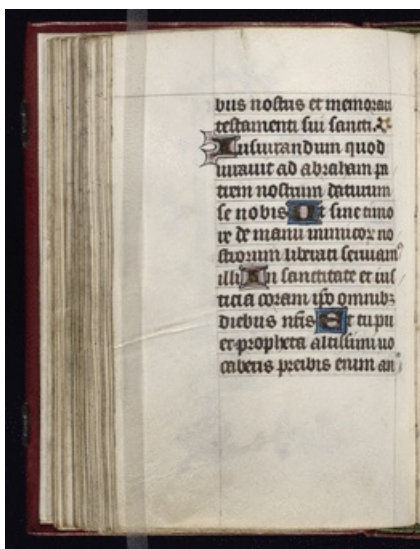 bus nostris et memorari
testamenti sui sancti.
Iusiurandum quod
iurauit ad abraham pa
trem nostrum daturum
se nobis Ut sine timo
re de manu inimicor no
strorum liberati seruiam
illi In sanctitate et ius
ticia coram ipso omnibz
diebus nris Et tu pu
er propheta altissimi uo
caberis preibis enim an